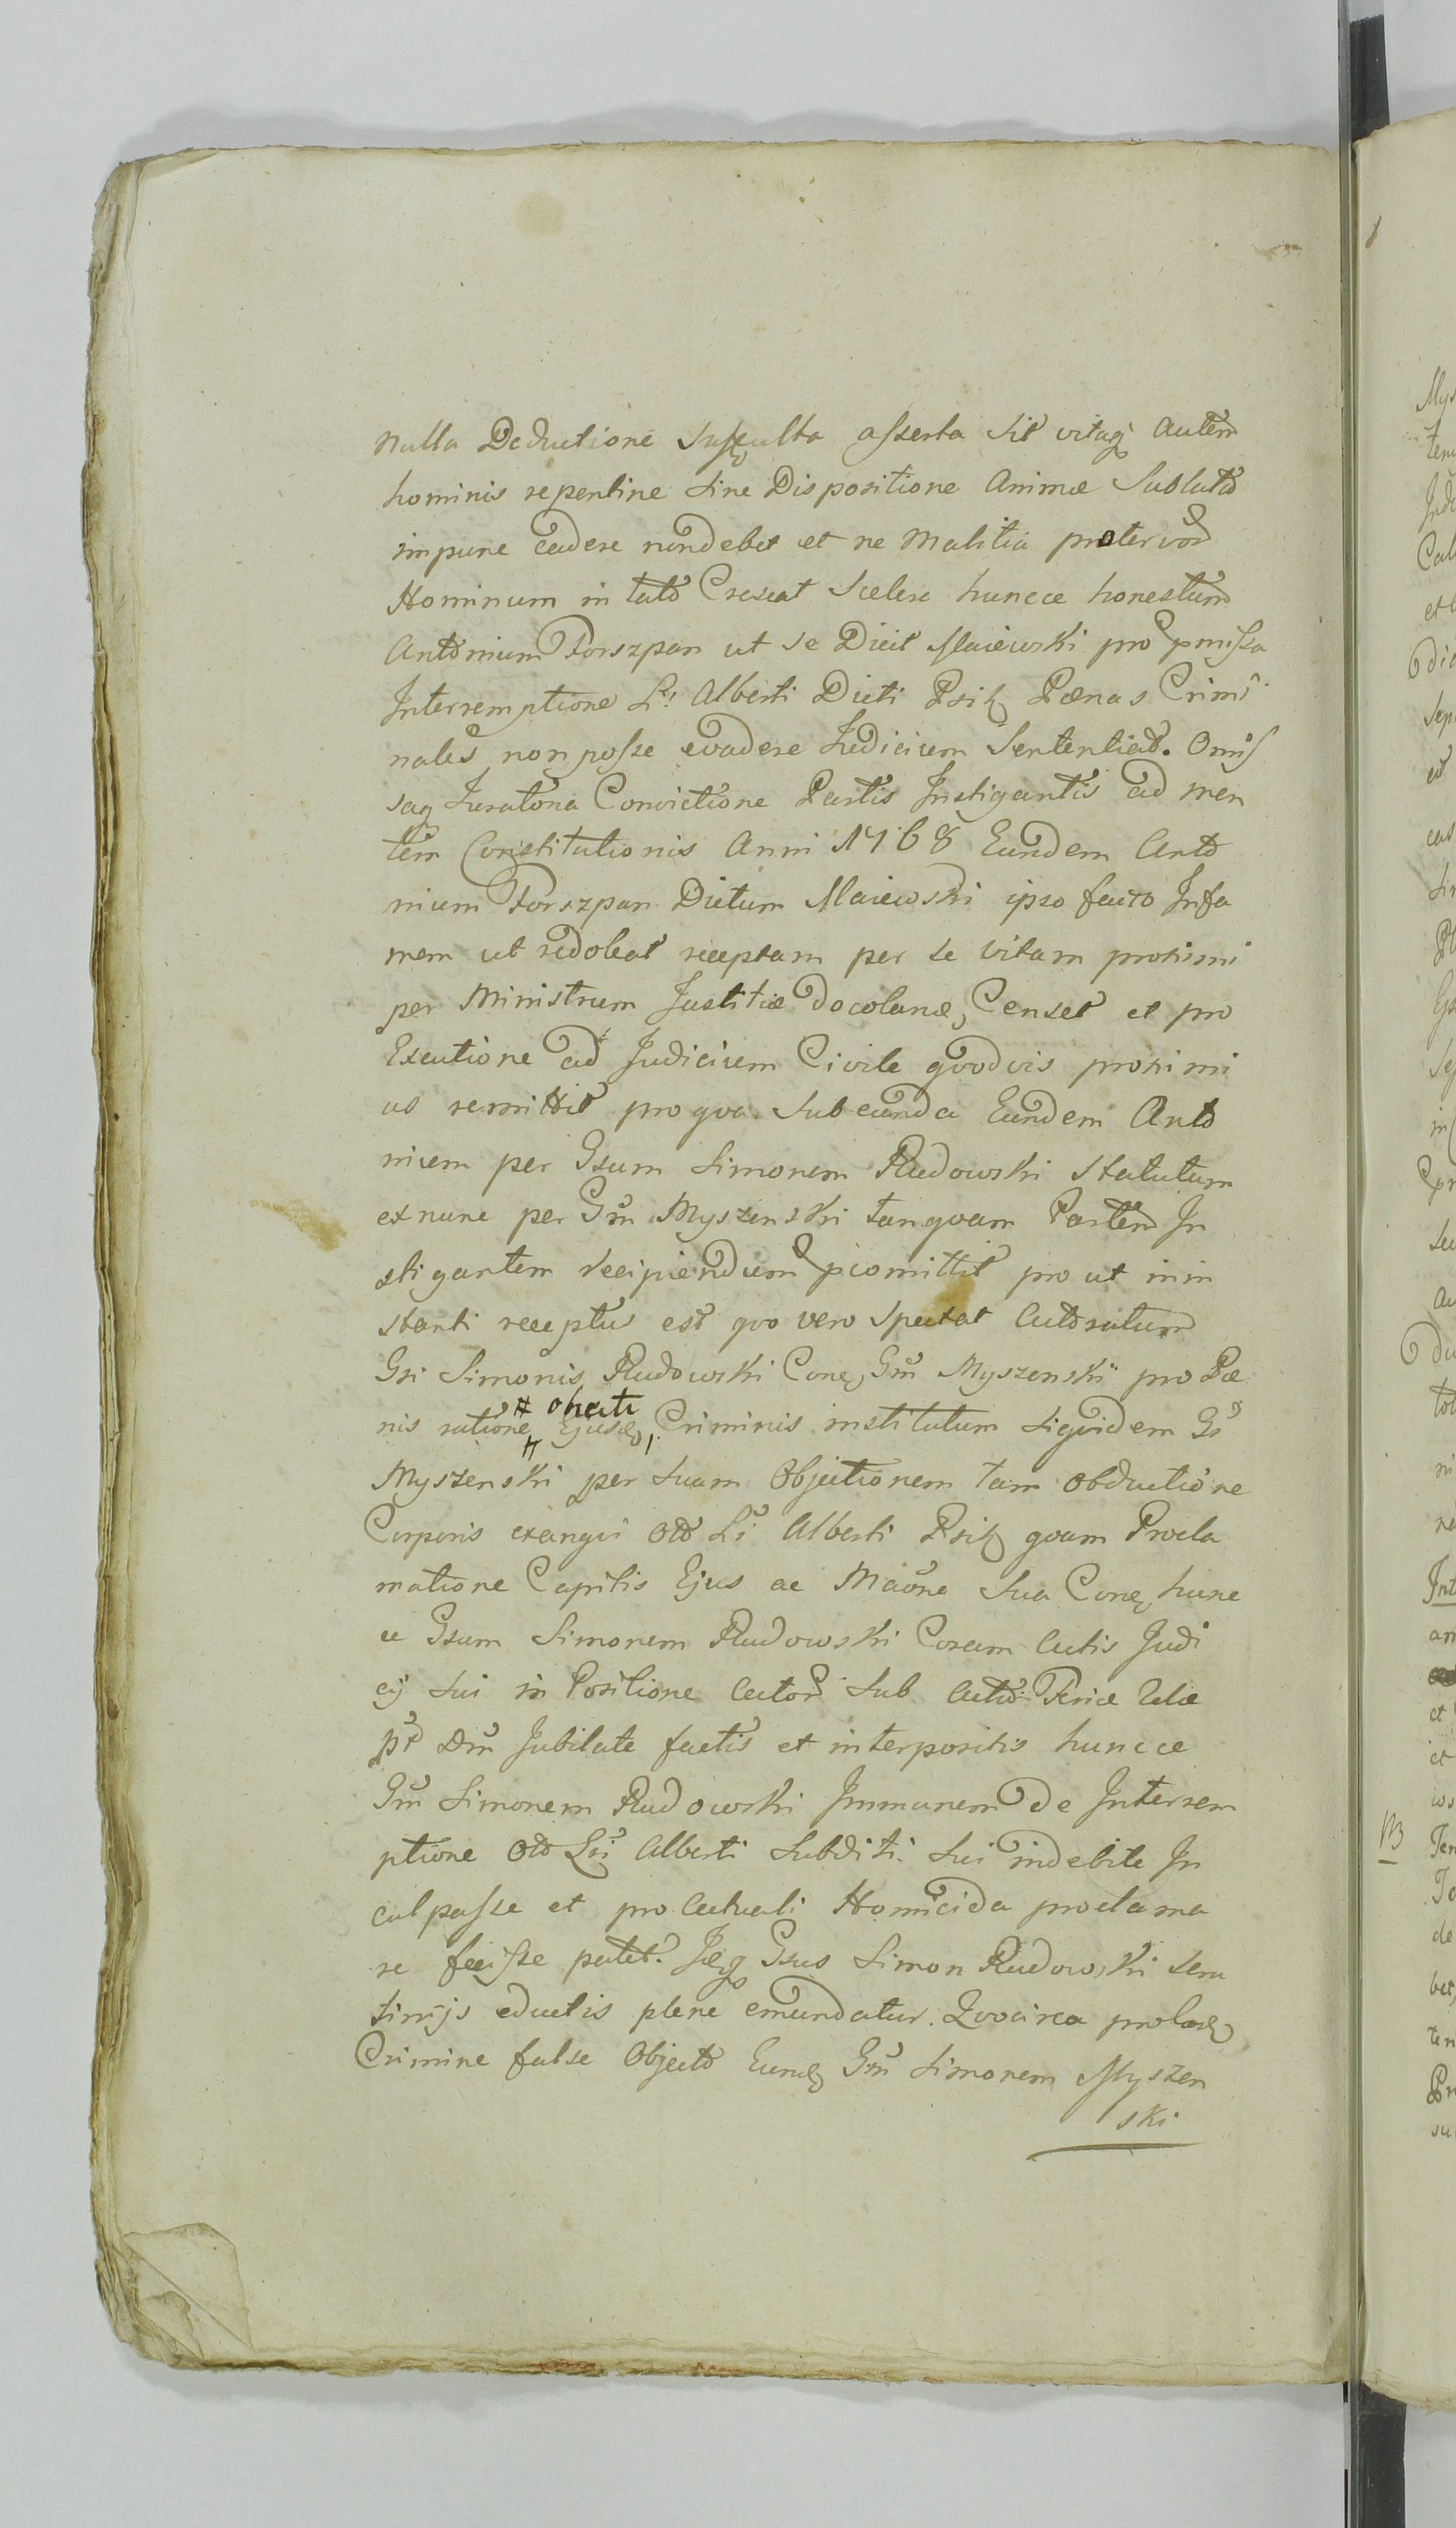 nulla Deductione suffulta asserta sit vitaq autem
hominis repentine sine Dispositione Animæ Sublato
impune cadere non debet et ne Malitia protervor
Hominum in tato Crescat Scelere huncce honestum
Antonium Forszpan ut se Dicit Maiewski pro pmissa
Interremptione L: Alberti Dicti Psik Pænas Crimi
nales non posse evadere Judicium Sententiat. Omis
saq Juratoria Convictione Partis Instigantis ad men
tem Constitutionis Anni 1768 Eundem Anto
nium Forszpan Dictum Maiewski ipso facto Infa
mem ut redoleat receptam per se vitam proximi
per Ministrum Justitiæ docoland, Censet et pro
Exeutione ad Judicium Civile qvodvis proximi
us remittit pro qva subeunda Eundem Anto
nium per Gsum Simonem Rudowski Statutum
exnunc per Gm Myszenski tanqvam Partem In
stigantem recipiendum pcomittit pro ut in in
stanti receptus est qvo vero spectat Actoratum
Gsi Simonis Rudowski Cone Gm Myszenski pro Pæ
nis ratione # obcati Ejusd Criminis institutum siqvidem Gs
Myszenski per suam Objectionem tam obductione
Corporis exangvi Old Li Alberti Psik qvam Procla
matione Capitis Ejus ac Maone sua Cone hunc
ce Gsum Simonem Rudowski Coram Actis Judi
cij sui in Positione Actor sub Actu Feriæ 2dæ
pt Dm Jubilate factis et interpositis huncce
Gm Simonem Rudowski Immunem de Interrem
ptione Old Lsi Alberti Subditi sui indebite In
culpasse et pro Actuali Homicida proclama
re fecisse patet. Idq Gsus Simon Rudowski scru
tinijs eductis plene emundatur. Qvocirca pro
Crimine false Objecto Eund Gm Simonem Myszen
ski